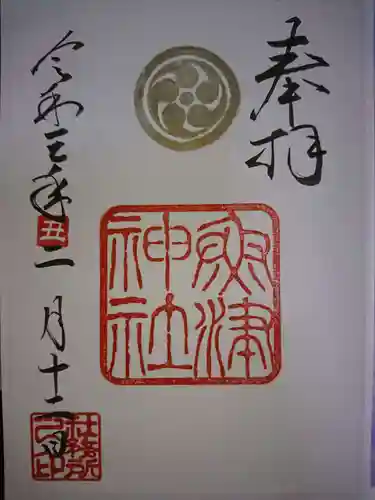 奉拝
津
神社
令和三年丑二月十二日
社務所
之印